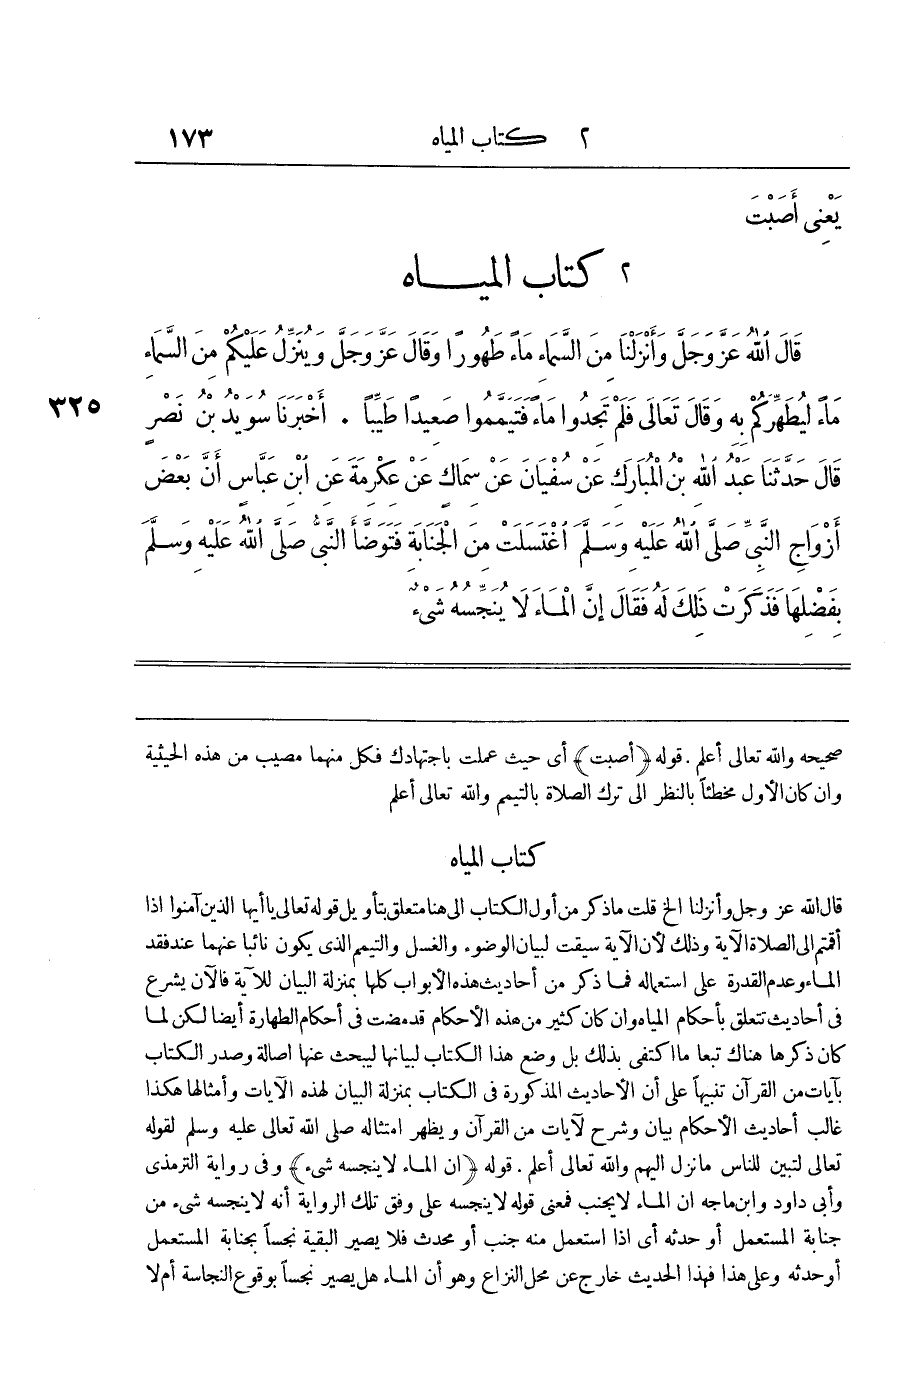 ٢ كتاب المياه ١٧٣
يَعْنِى أَصَبْتَ
٢ كتاب الميـــاه
قَالَ ٱللهُ عَزَّ وَجَلَّ وَأَنْزَلْنَا مِنَ السَّمَاءِ مَاءً طَهُورًا وَقَالَ عَزَّ وَجَلَّ وَيُنَزِّلُ عَلَيْكُمْ مِنَ السَّمَاءِ
مَاءً لِيُطَهِّرَكُمْ بِهِ وَقَالَ تَعَالَى فَلَمْ تَجِدُوا مَاءً فَتَيَمَّمُوا صَعِيدًا طَيِّبًا . أَخْبَرَنَا سُوَيْدُ بْنُ نَصْرٍ ٣٢٥
قَالَ حَدَّثَنَا عَبْدُ ٱللهِ بْنُ الْمُبَارَكِ عَنْ سُفْيَانَ عَنْ سِمَاكٍ عَنْ عِكْرِمَةَ عَنِ ٱبْنِ عَبَّاسٍ أَنَّ بَعْضَ
أَزْوَاجِ النَّبِىِّ صَلَّى ٱللهُ عَلَيْهِ وَسَلَّمَ ٱغْتَسَلَتْ مِنَ الْجَنَابَةِ فَتَوَضَّأَ النَّبِىُّ صَلَّى ٱللهُ عَلَيْهِ وَسَلَّمَ
بِفَضْلِهَا فَذَكَرَتْ ذٰلِكَ لَهُ فَقَالَ إِنَّ الْمَاءَ لَا يُنَجِّسُهُ شَىْءٌ
صحيحه والله تعالى أعلم . قوله ﴿أصبت﴾ أى حيث عملت باجتهادك فكل منهما مصيب من هذه الحيثية
وان كان الأول مخطئاً بالنظر الى ترك الصلاة بالتيمم والله تعالى أعلم
كتاب المياه
قال الله عز وجل وأنزلنا الخ قلت ماذكر من أول الكتاب الى هنا متعلق بتأويل قوله تعالى ياأيها الذين آمنوا اذا
أقمتم الى الصلاة الآية وذلك لأن الآية سيقت لبيان الوضوء والغسل والتيمم الذى يكون نائبا عنهما عند فقد
الماء وعدم القدرة على استعماله فما ذكر من أحاديث هذه الأبواب كلها بمنزلة البيان للآية فالآن يشرع
فى أحاديث تتعلق بأحكام المياه وان كان كثير من هذه الأحكام قد مضت فى أحكام الطهارة أيضا لكن لما
كان ذكرها هناك تبعا مااكتفى بذلك بل وضع هذا الكتاب لبيانها ليبحث عنها اصالة وصدر الكتاب
بآيات من القرآن تنبيهاً على أن الأحاديث المذكورة فى الكتاب بمنزلة البيان لهذه الآيات وأمثالها هكذا
غالب أحاديث الأحكام بيان وشرح لآيات من القرآن ويظهر امتثاله صلى الله تعالى عليه وسلم لقوله
تعالى لتبين للناس مانزل اليهم والله تعالى أعلم . قوله ﴿ان الماء لاينجسه شىء﴾ وفى رواية الترمذى
وأبى داود وابن ماجه ان الماء لايجنب فمعنى قوله لاينجسه على وفق تلك الرواية أنه لاينجسه شىء من
جنابة المستعمل أو حدثه أى اذا استعمل منه جنب أو محدث فلا يصير البقية نجساً بجنابة المستعمل
أوحدثه وعلى هذا فهذا الحديث خارج عن محل النزاع وهو أن الماء هل يصير نجساً بوقوع النجاسة أم لا